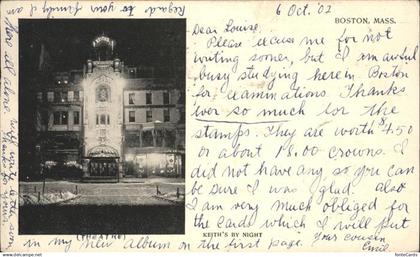 6 Oct. '02
BOSTON, MASS.
Dear Louise.
Please excuse me for not
writing sooner, but I am awful
busy studying here in Boston
for examinations. Thanks
ever so much for the
stamps. They are worth $4.50
or about 18.00 crowns. I did
not have any so you can
be sure I was glad. also
I am very much obliged for
the cards which I will put
in my new album on the first page. Your cousin
Emil.
(THEATRE)
KEITH'S BY NIGHT
Regard to your family I am
here all alone. Will write
soon
www.fontecards.com